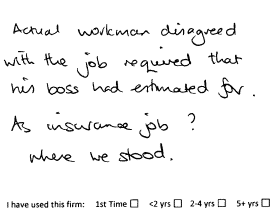 Actual workman disagreed
with the job required that
his boss had estimated for.
As insurance job ?
where we stood.
I have used this firm: 1st Time ☐ <2 yrs ☐ 2-4 yrs ☐ 5+ yrs ☐